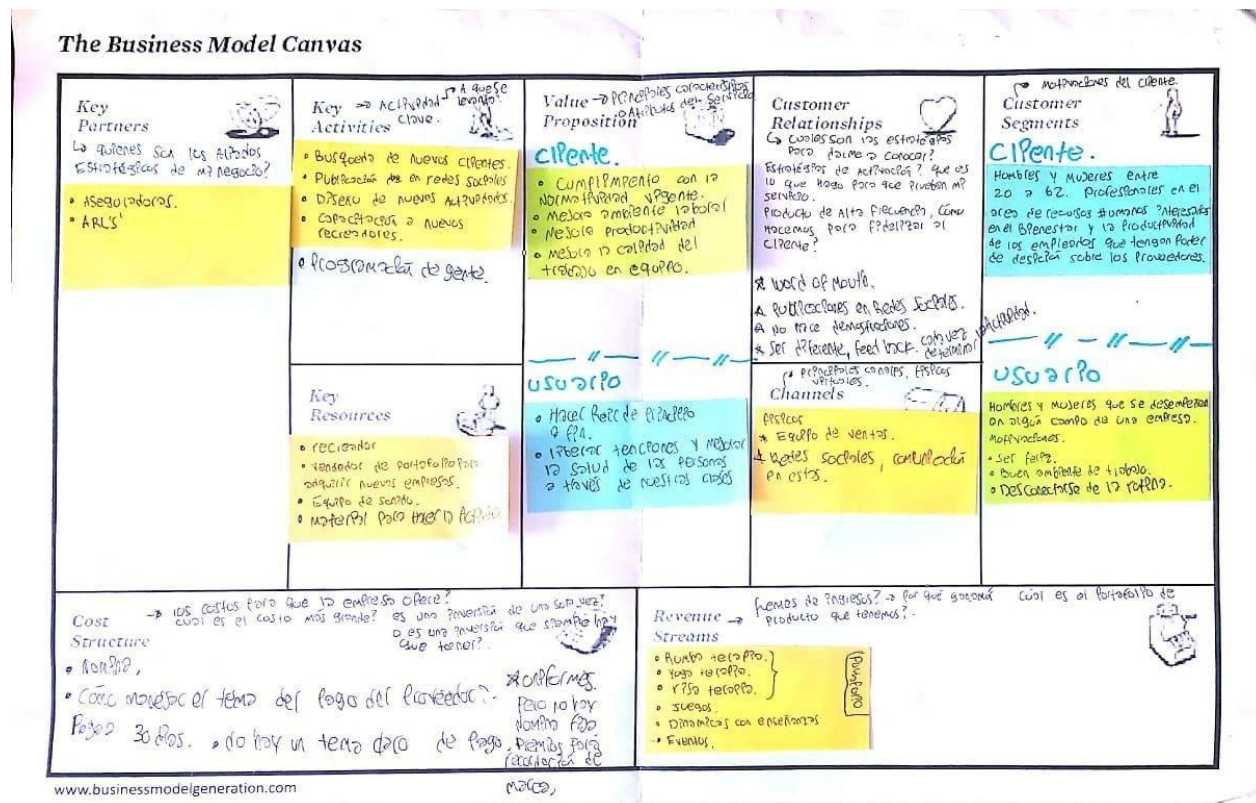 The Business Model Canvas
Key
Partners
↳ quienes son los Aliados
Estratégicos de mi negocio?
• Aseguradoras.
• ARL's'
Key → Actividad
Activities clave.
→ A que se
levanta?
• Busqueda de nuevos clientes.
• Publicación en redes sociales
• Diseño de nuevos Actividades
• capacitación a nuevos
recreadores.
• Programación de gente.
Key
Resources
• recreador
• vendedor de portafolio para
adquirir nuevas empresas.
• Equipo de sonido.
• material para hacer la Activida
Value → Principales características
Proposition o Atributos del servicio
cliente.
• Cumplimiento con la
normatividad vigente.
• Mejora ambiente laboral
• Mejora productividad
• Mejora la calidad del
trabajo en equipo.
usuario
• Hacer Reir de principio
a fin.
• liberar tenciones y mejorar
la salud de las personas
a través de nuestras clases
Customer
Relationships
↳ cuales son las estrategias
para darme a conocer?
Estrategias de Activación? que es
lo que hago para que prueben mi
servicio.
Producto de Alta frecuencia, como
hacemos para fidelizar al
cliente?
* word of mouth.
* Publicaciones en Redes Sociales.
* No hace demostraciones.
* Ser diferente, feed back. cada vez
determinar la Actividad.
→ principales canales, físicos
virtuales.
Channels
físicos
* Equipo de ventas.
* Redes sociales, comunicación
en estas.
→ motivaciones del cliente.
Customer
Segments
cliente.
Hombres y Mujeres entre
20 a 62. Profesionales en el
area de recursos Humanos interesados
en el Bienestar y la Productividad
de los empleados que tengan Poder
de desición sobre los Proveedores.
usuario
Hombres y Mujeres que se desempeñan
en algún campo de una empresa.
motivaciones.
• Ser feliz.
• Buen ambiente de trabajo.
• Desconectarse de la rutina.
Cost
Structure
→ los costos para que la empresa opere?
cual es el costo más grande? es una inversión de una sola vez?
o es una inversión que siempre hay
que tener?
• Nomina,
• Cómo manejar el tema del Pago del Proveedor?
Pagos 30 días. • No hay un tema claro de Pago.
* uniformes.
Pero no hay
nomina fija
Premios para
recordación de
marca,
Revenue
Streams
→ fuentes de ingresos? → por qué ganamos cual es el Portafolio de
producto que tenemos?
• Rumba terapia.
• yoga terapia.
• risa terapia.
• Juegos.
• Dinamicas con enseñanzas
• Eventos.
Portafolio
www.businessmodelgeneration.com